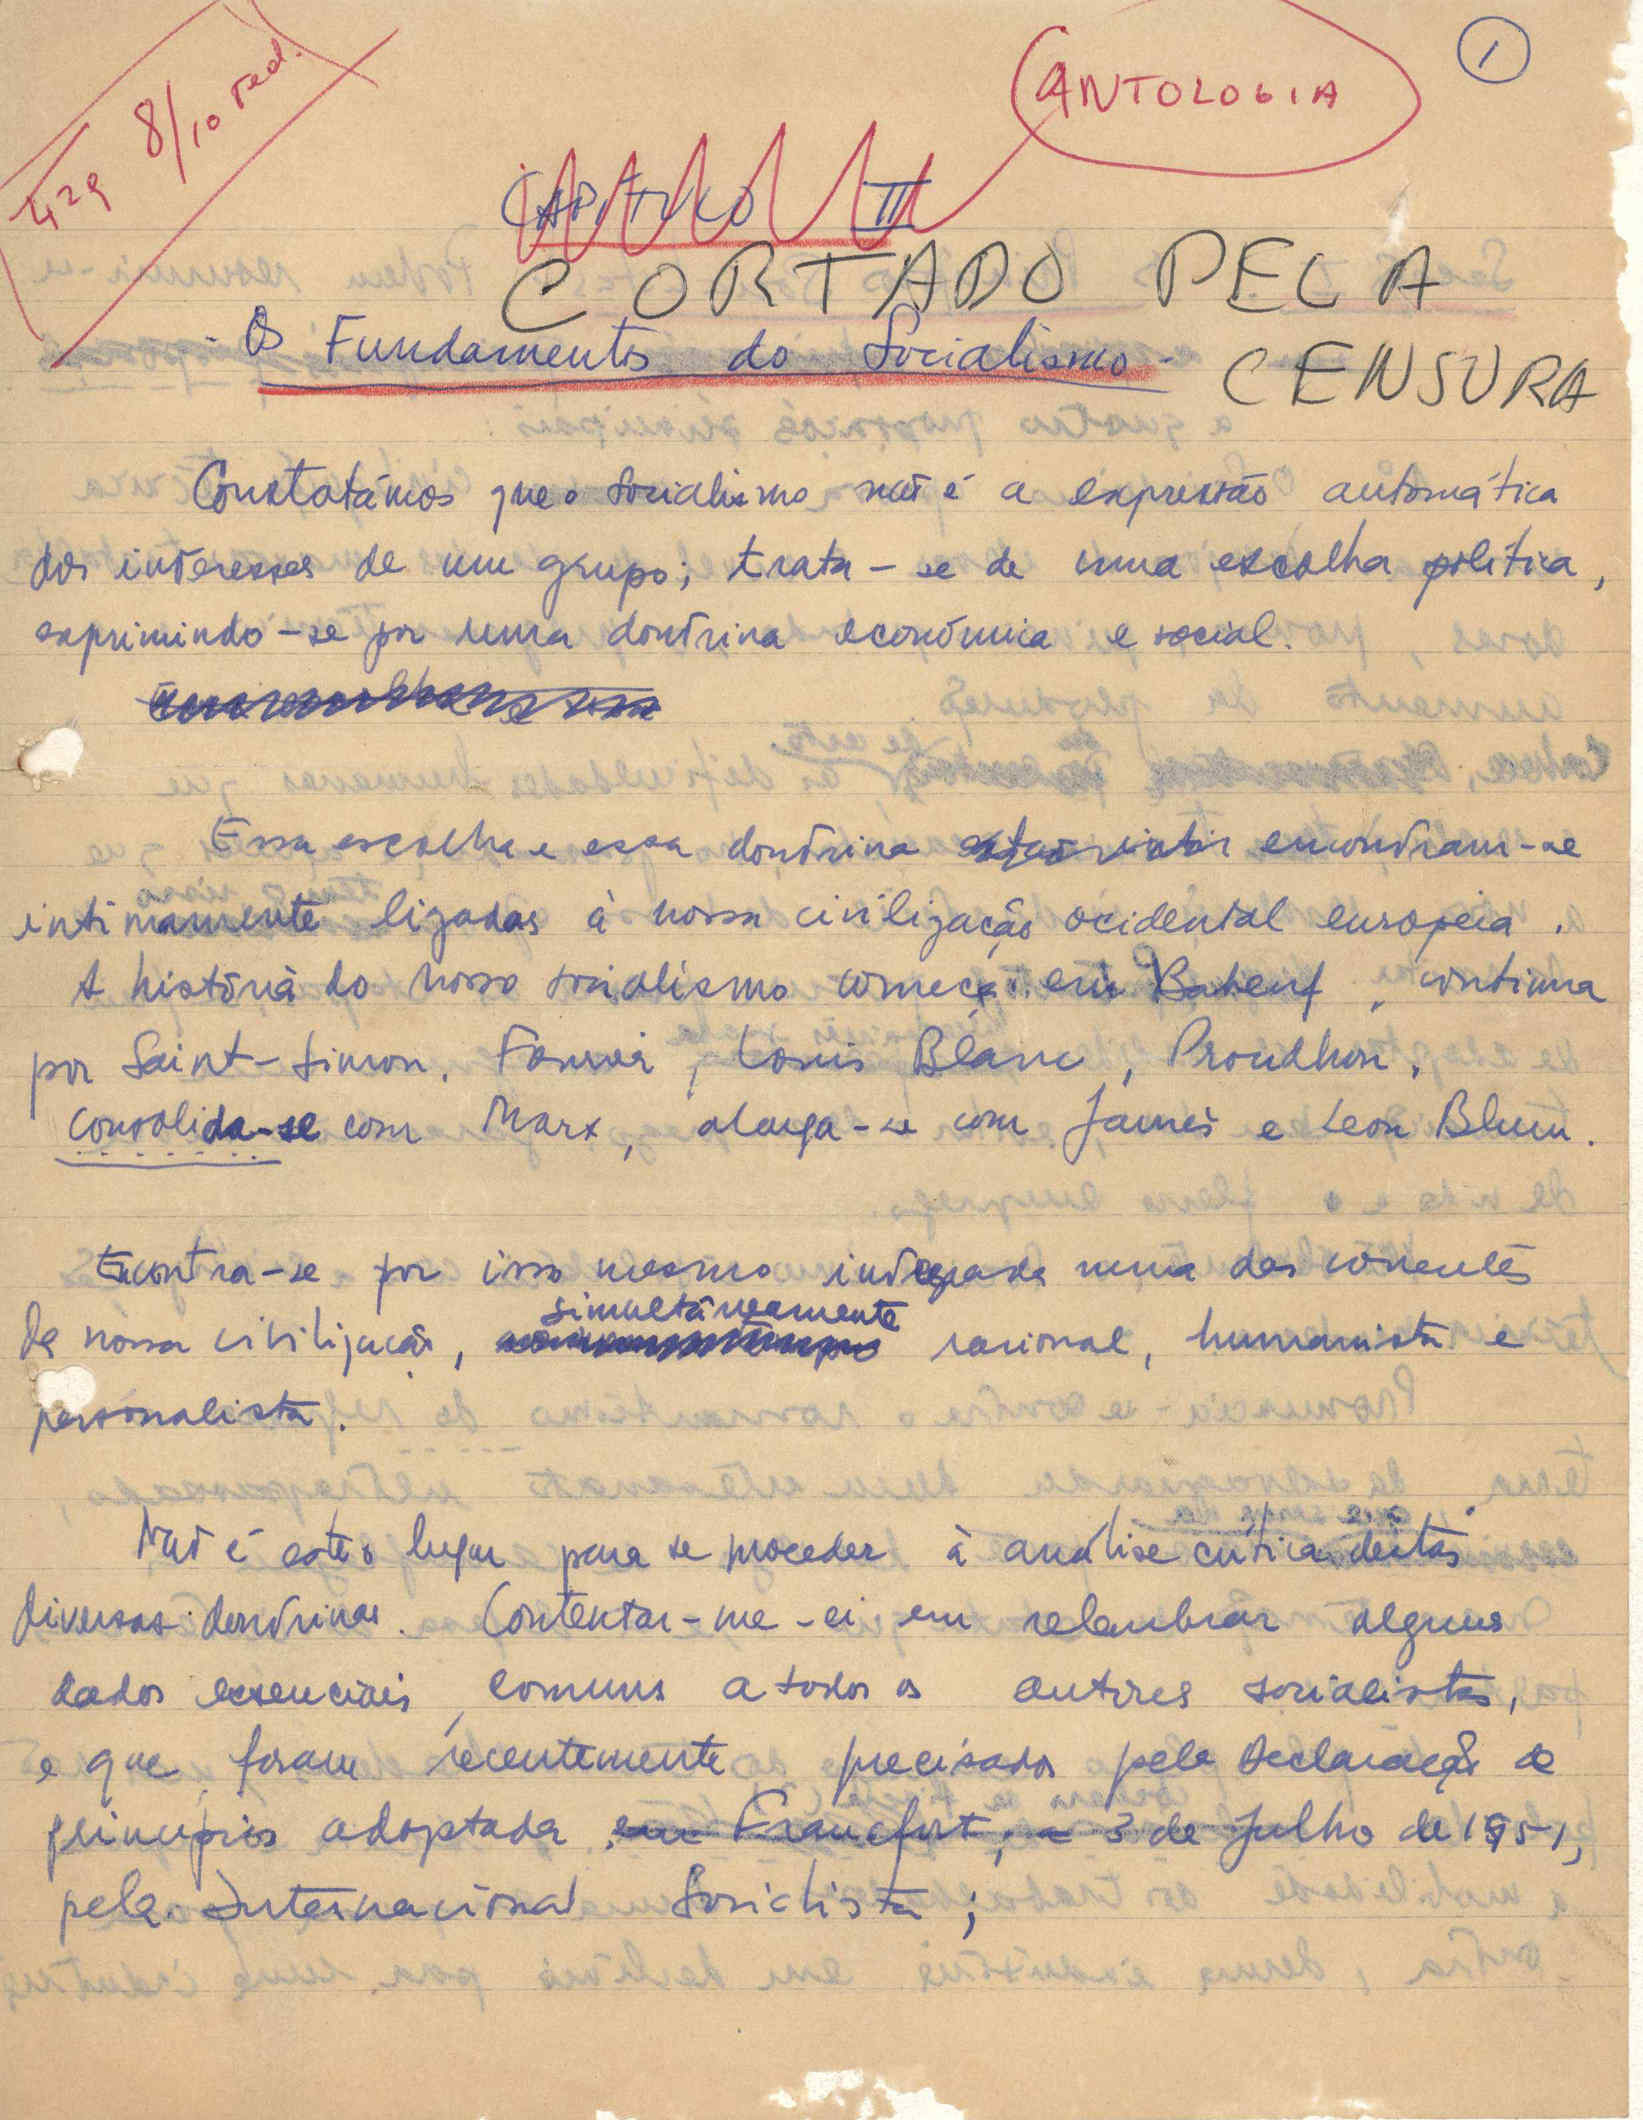 1
ANTOLOGIA
429 8/10 red.
CAPÍTULO II
CORTADO PELA
CENSURA
- Os Fundamentos do Socialismo -
Constatámos que o socialismo não é a expressão automática
dos interesses de um grupo; trata-se de uma escolha política,
exprimindo-se por uma doutrina económica e social.
Essa escolha e essa doutrina encontram-se
intimamente ligadas à nossa civilização ocidental europeia.
A história do nosso socialismo começa em Babeuf, continua
por Saint-Simon, Fourier, Louis Blanc, Proudhon,
consolida-se com Marx, alarga-se com Jaurès e Leon Blum.
Encontra-se por isso mesmo integrada numa das correntes
da nossa civilização, simultâneamente racional, humanista e
personalista.
Não é este o lugar para se proceder à análise crítica destas
diversas doutrinas. Contentar-me-ei em relembrar alguns
dados essenciais, comuns a todos os autores socialistas,
e que foram recentemente precisados pela Declaração de
princípios adoptada em Francfort, a 3 de Julho de 1951,
pela Internacional Socialista;